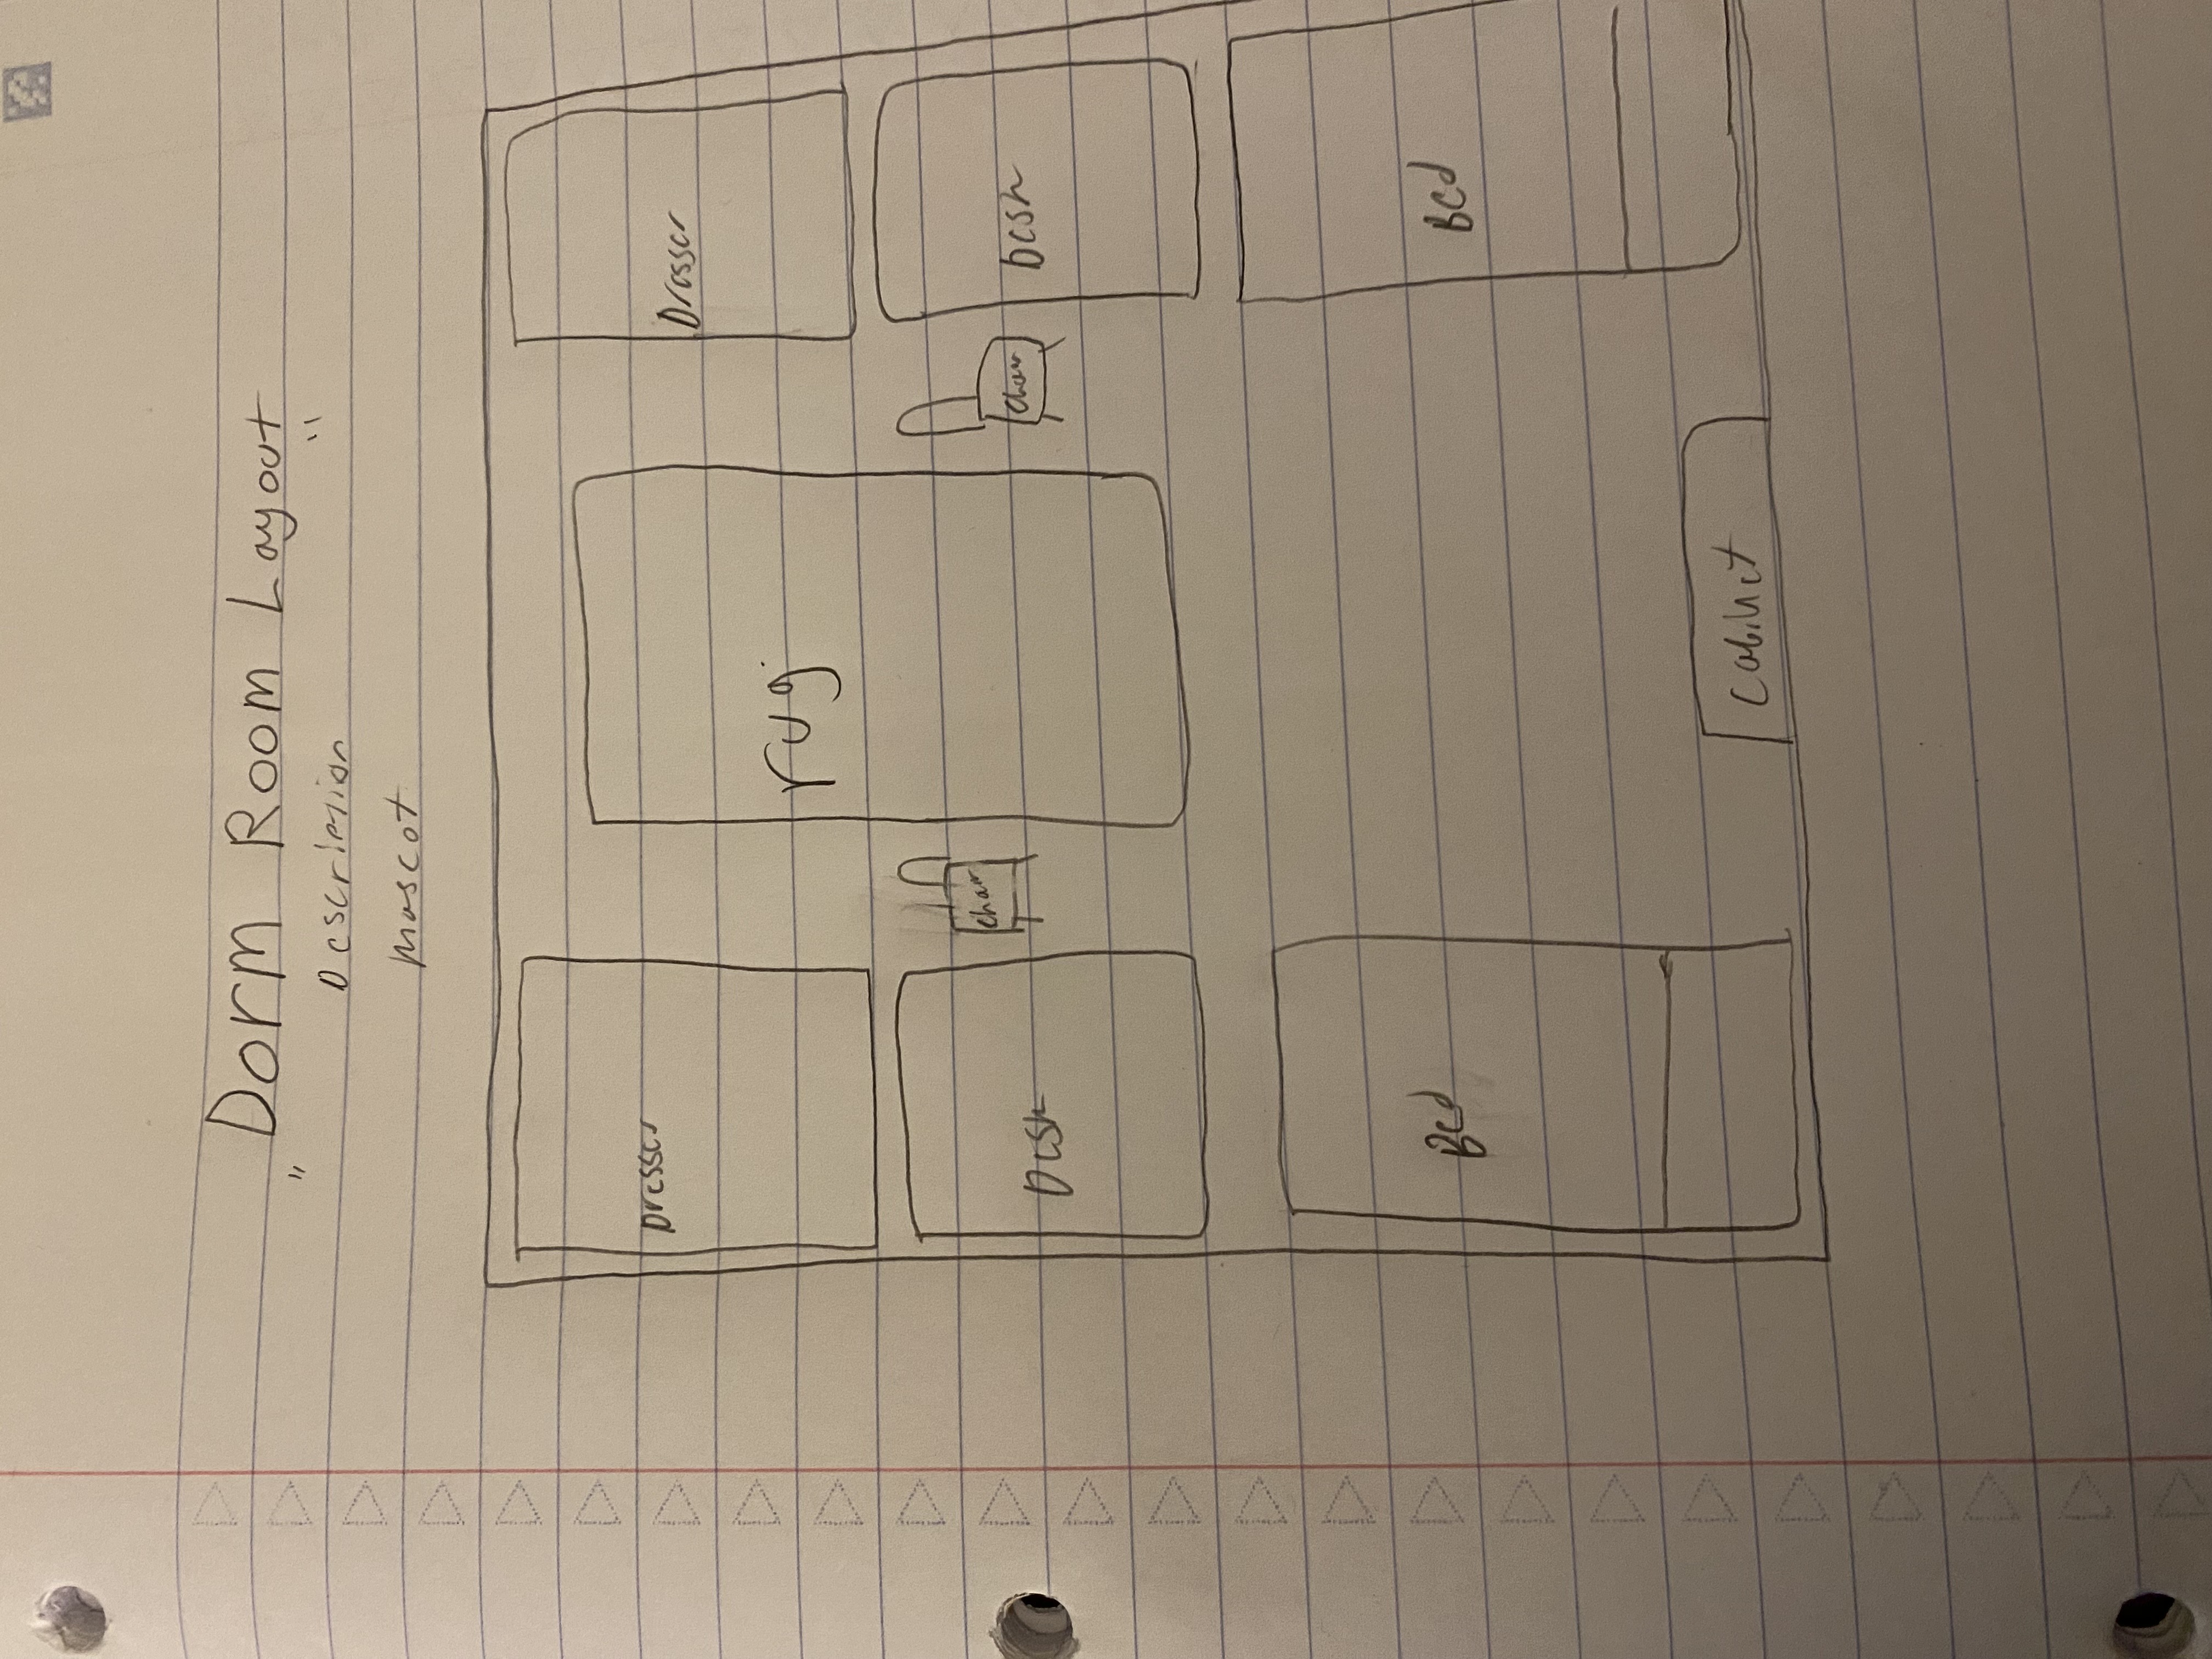 Dorm Room Layout
" "
Description
mascot
Dresser
Dresser
rug
chair
chair
Desk
Desk
Bed
Bed
Cabinet